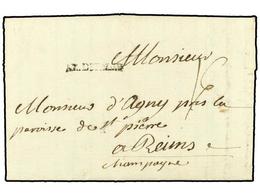 Monsieur
Monsieur d'Agny près la
paroisse de st pierre
a Reims
champagne